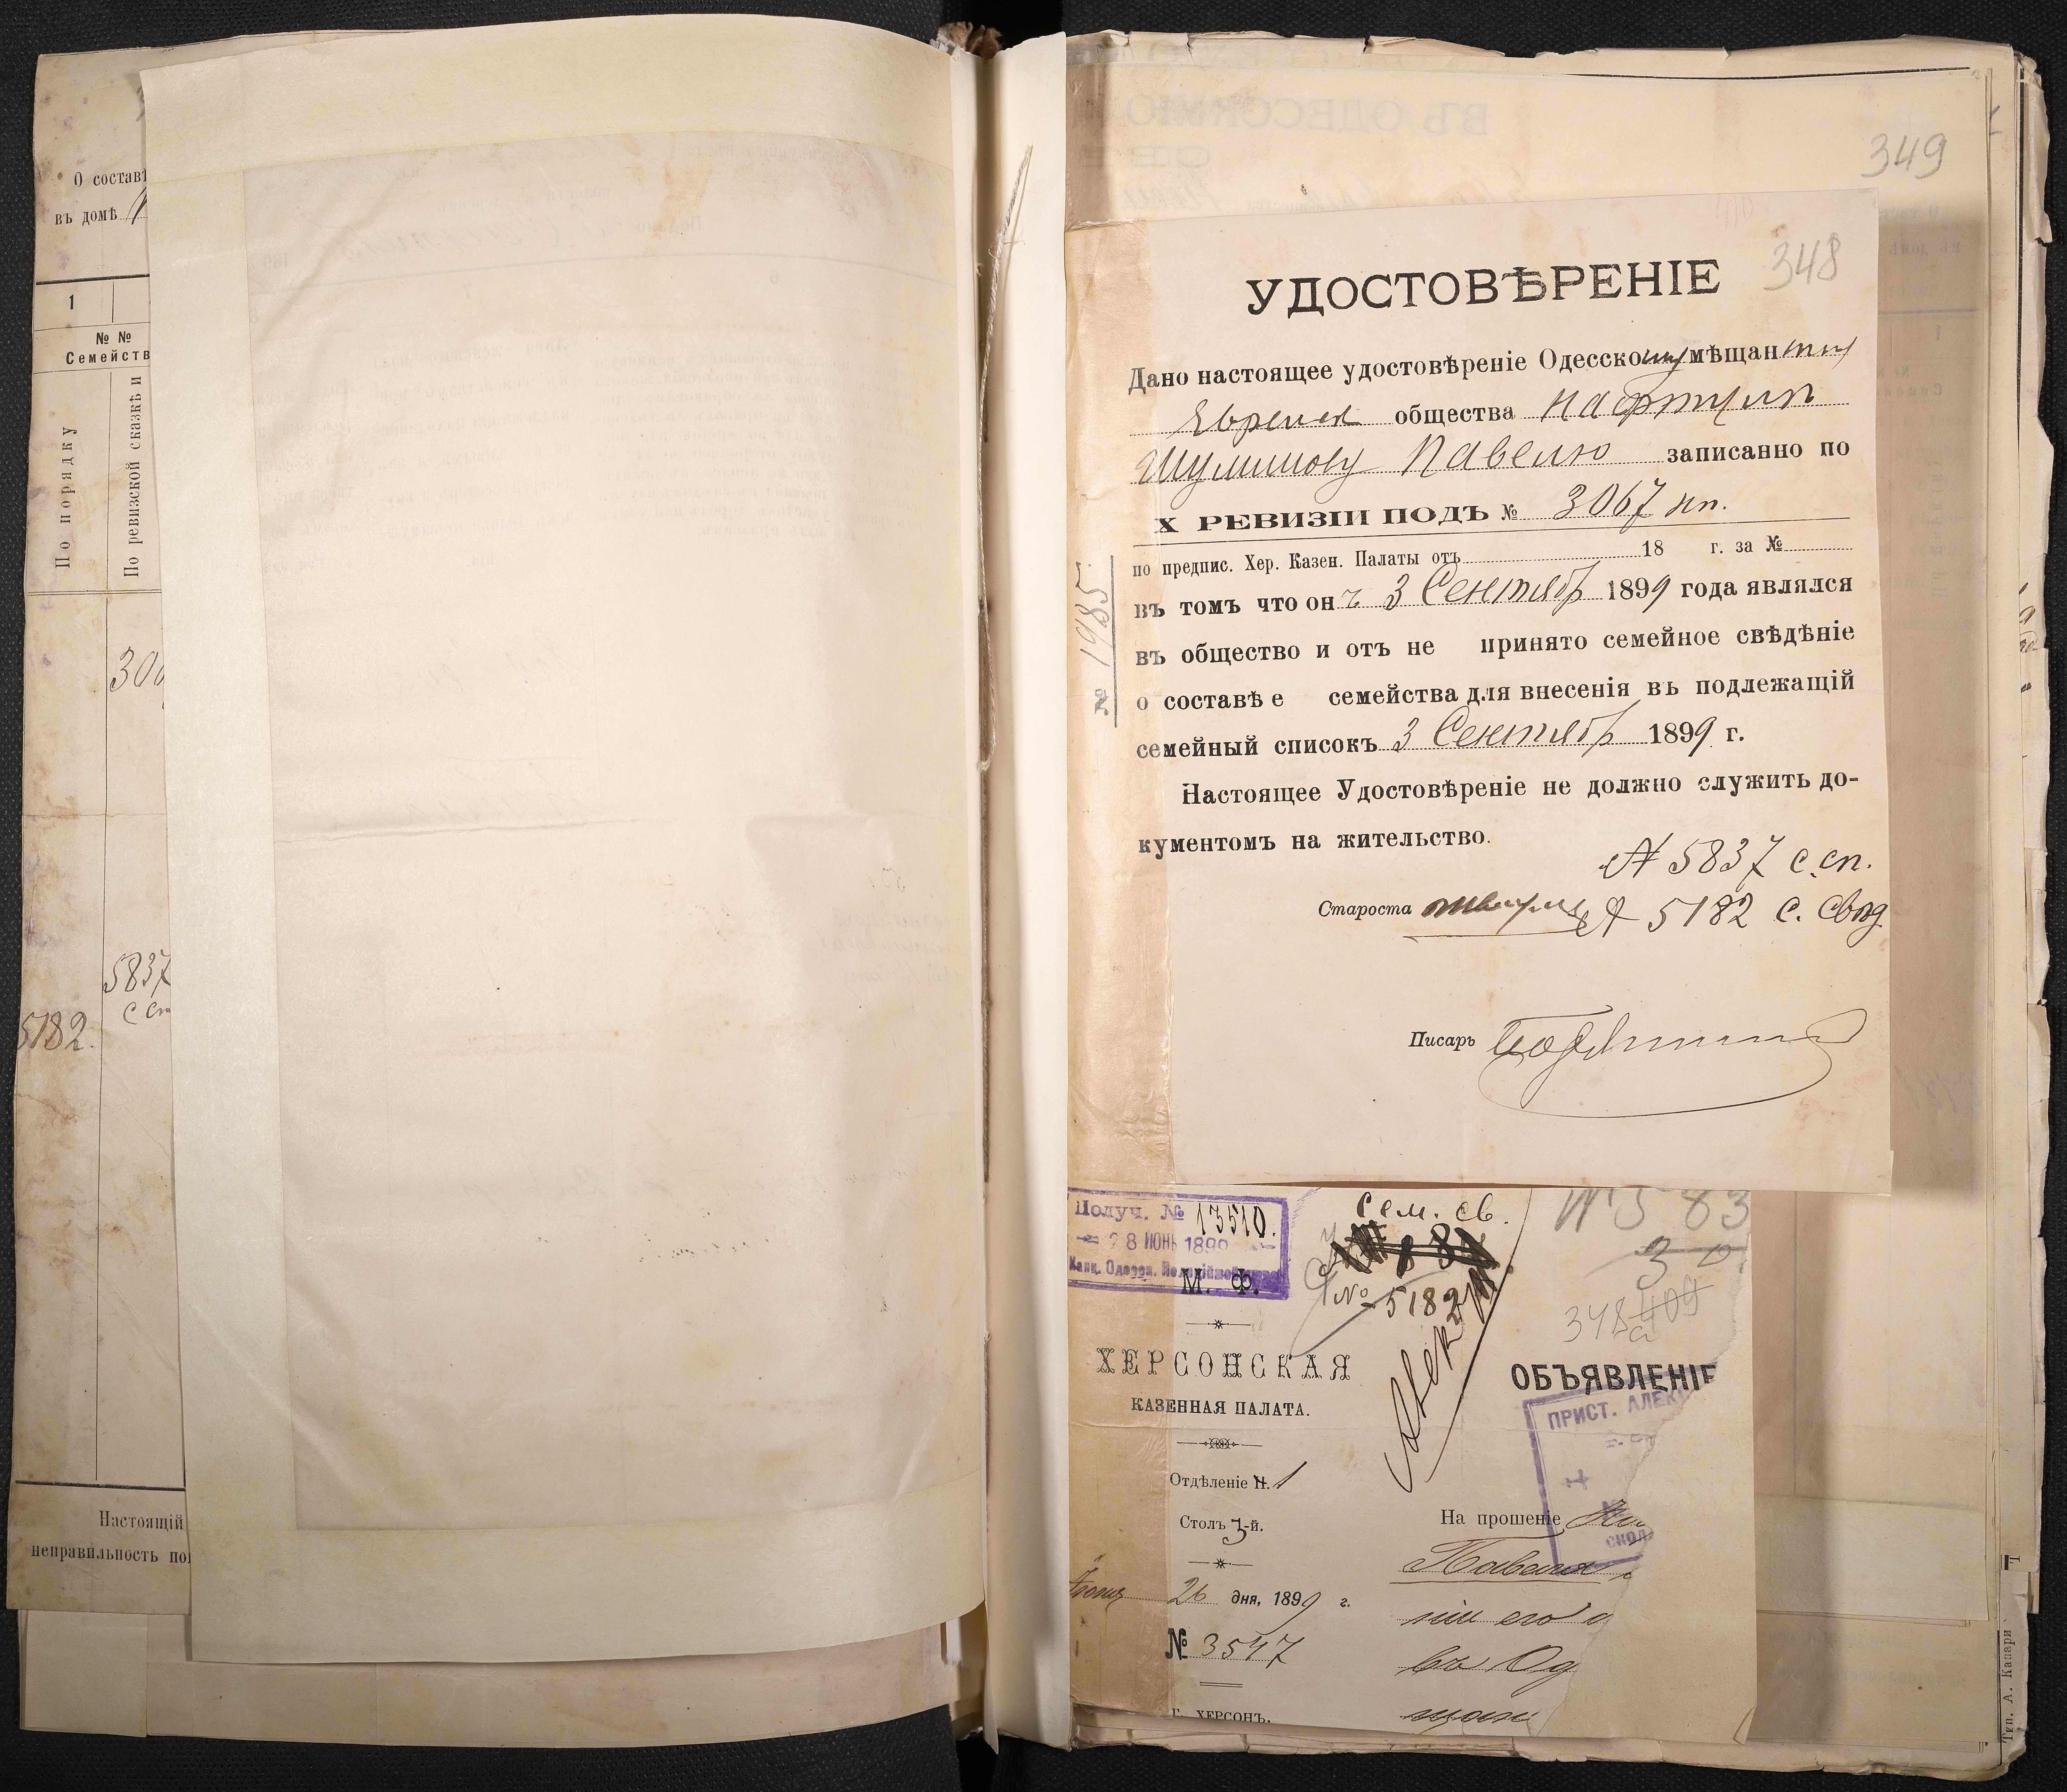 О составѣ
въ домѣ
1
№ №
Семейств
По порядку
По ревизской сказкѣ и
306
5837
с сп
5182.
Настоящій
неправильность по
349
348
УДОСТОВѢРЕНІЕ
Дано настоящее удостовѣреніе Одесскому мѣщанину
Евреиск общества Нафтулѣ
Шулимову Павелю записанно по
X РЕВИЗІИ ПОДЪ № 3067 нп.
по предпис. Хер. Казен. Палаты отъ 18 г. за №
въ томъ что онъ 3 Сентябр 1899 года являлся
въ общество и отъ не принято семейное свѣдѣніе
о составѣ е семейства для внесенія въ подлежащій
семейный списокъ 3 Сентябр 1899 г.
Настоящее Удостовѣреніе не должно служить до-
кументомъ на жительство.
№ 5837 с. сп.
Староста № 5182 с. свѣд
Писарь
№ 1985
Получ. № 13510.
28 ИЮНЬ 1899
Канц. Одесск. Полиційм
М. Ф.
Сем. св.
№ 5182
№ 583
30
348 409
а
ХЕРСОНСКАЯ
КАЗЕННАЯ ПАЛАТА.
Отдѣленіе II. 1
Столъ 3-й.
Іюня 26 дня, 1899 г.
№ 3547
Г. ХЕРСОНЪ.
ОБЪЯВЛЕНІЕ
ПРИСТ. АЛЕК
На прошеніе
Павеля
ніи его
въ Од
щан
Тип. А. Капари